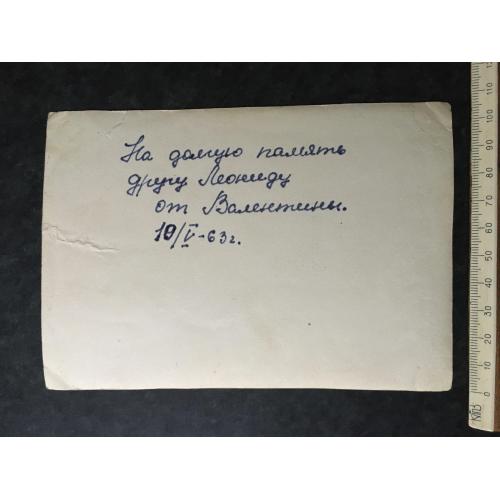 На долгую память
другу Леониду
от Валентины.
19/V-63 г.
0 10 20 30 40 50 60 70 80 90 100 110